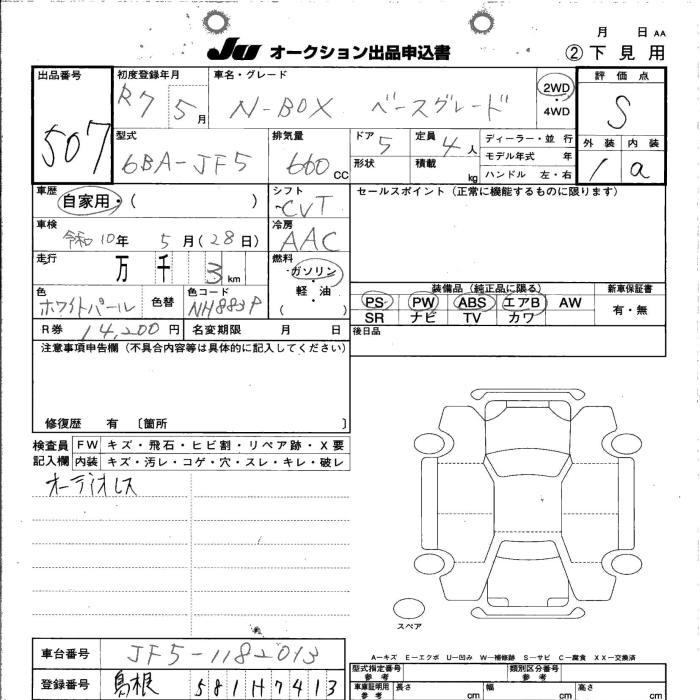 月 日 AA
JU オークション出品申込書 ②下見用
出品番号 初度登録年月 車名・グレード 評価点
507 R7 5月 N-BOX ベースグレード 2WD・4WD S
型式 排気量 ドア 定員 ディーラー・並行 外装 内装
6BA-JF5 660CC 5 4人 モデル年式 年 1 a
形状 積載 kg ハンドル 左・右
車歴 シフト セールスポイント(正常に機能するものに限ります)
自家用・( ) CVT
車検 冷房
令和10年 5月(28日) AAC
走行 燃料
万 千 3km ガソリン・軽油・( )
色 色替 色コード 装備品(純正品に限る) 新車保証書
ホワイトパール NH883P PS PW ABS エアB AW 有・無
SR ナビ TV カワ
R券 14,200円 名変期限 月 日 後日品
注意事項申告欄(不具合内容等は具体的に記入してください)
修復歴 有 〔箇所 〕
検査員記入欄 FW キズ・飛石・ヒビ割・リペア跡・X要
内装 キズ・汚レ・コゲ・穴・スレ・キレ・破レ
オーディオレス
スペア
A―キズ E―エクボ U―凹み W―補修跡 S―サビ C―腐食 XX―交換済
車台番号 JF5-1182013
型式指定番号 参考 類別区分番号 参考
登録番号 島根 581 H 7413
車庫証明用 参考 長さ cm 幅 cm 高さ cm